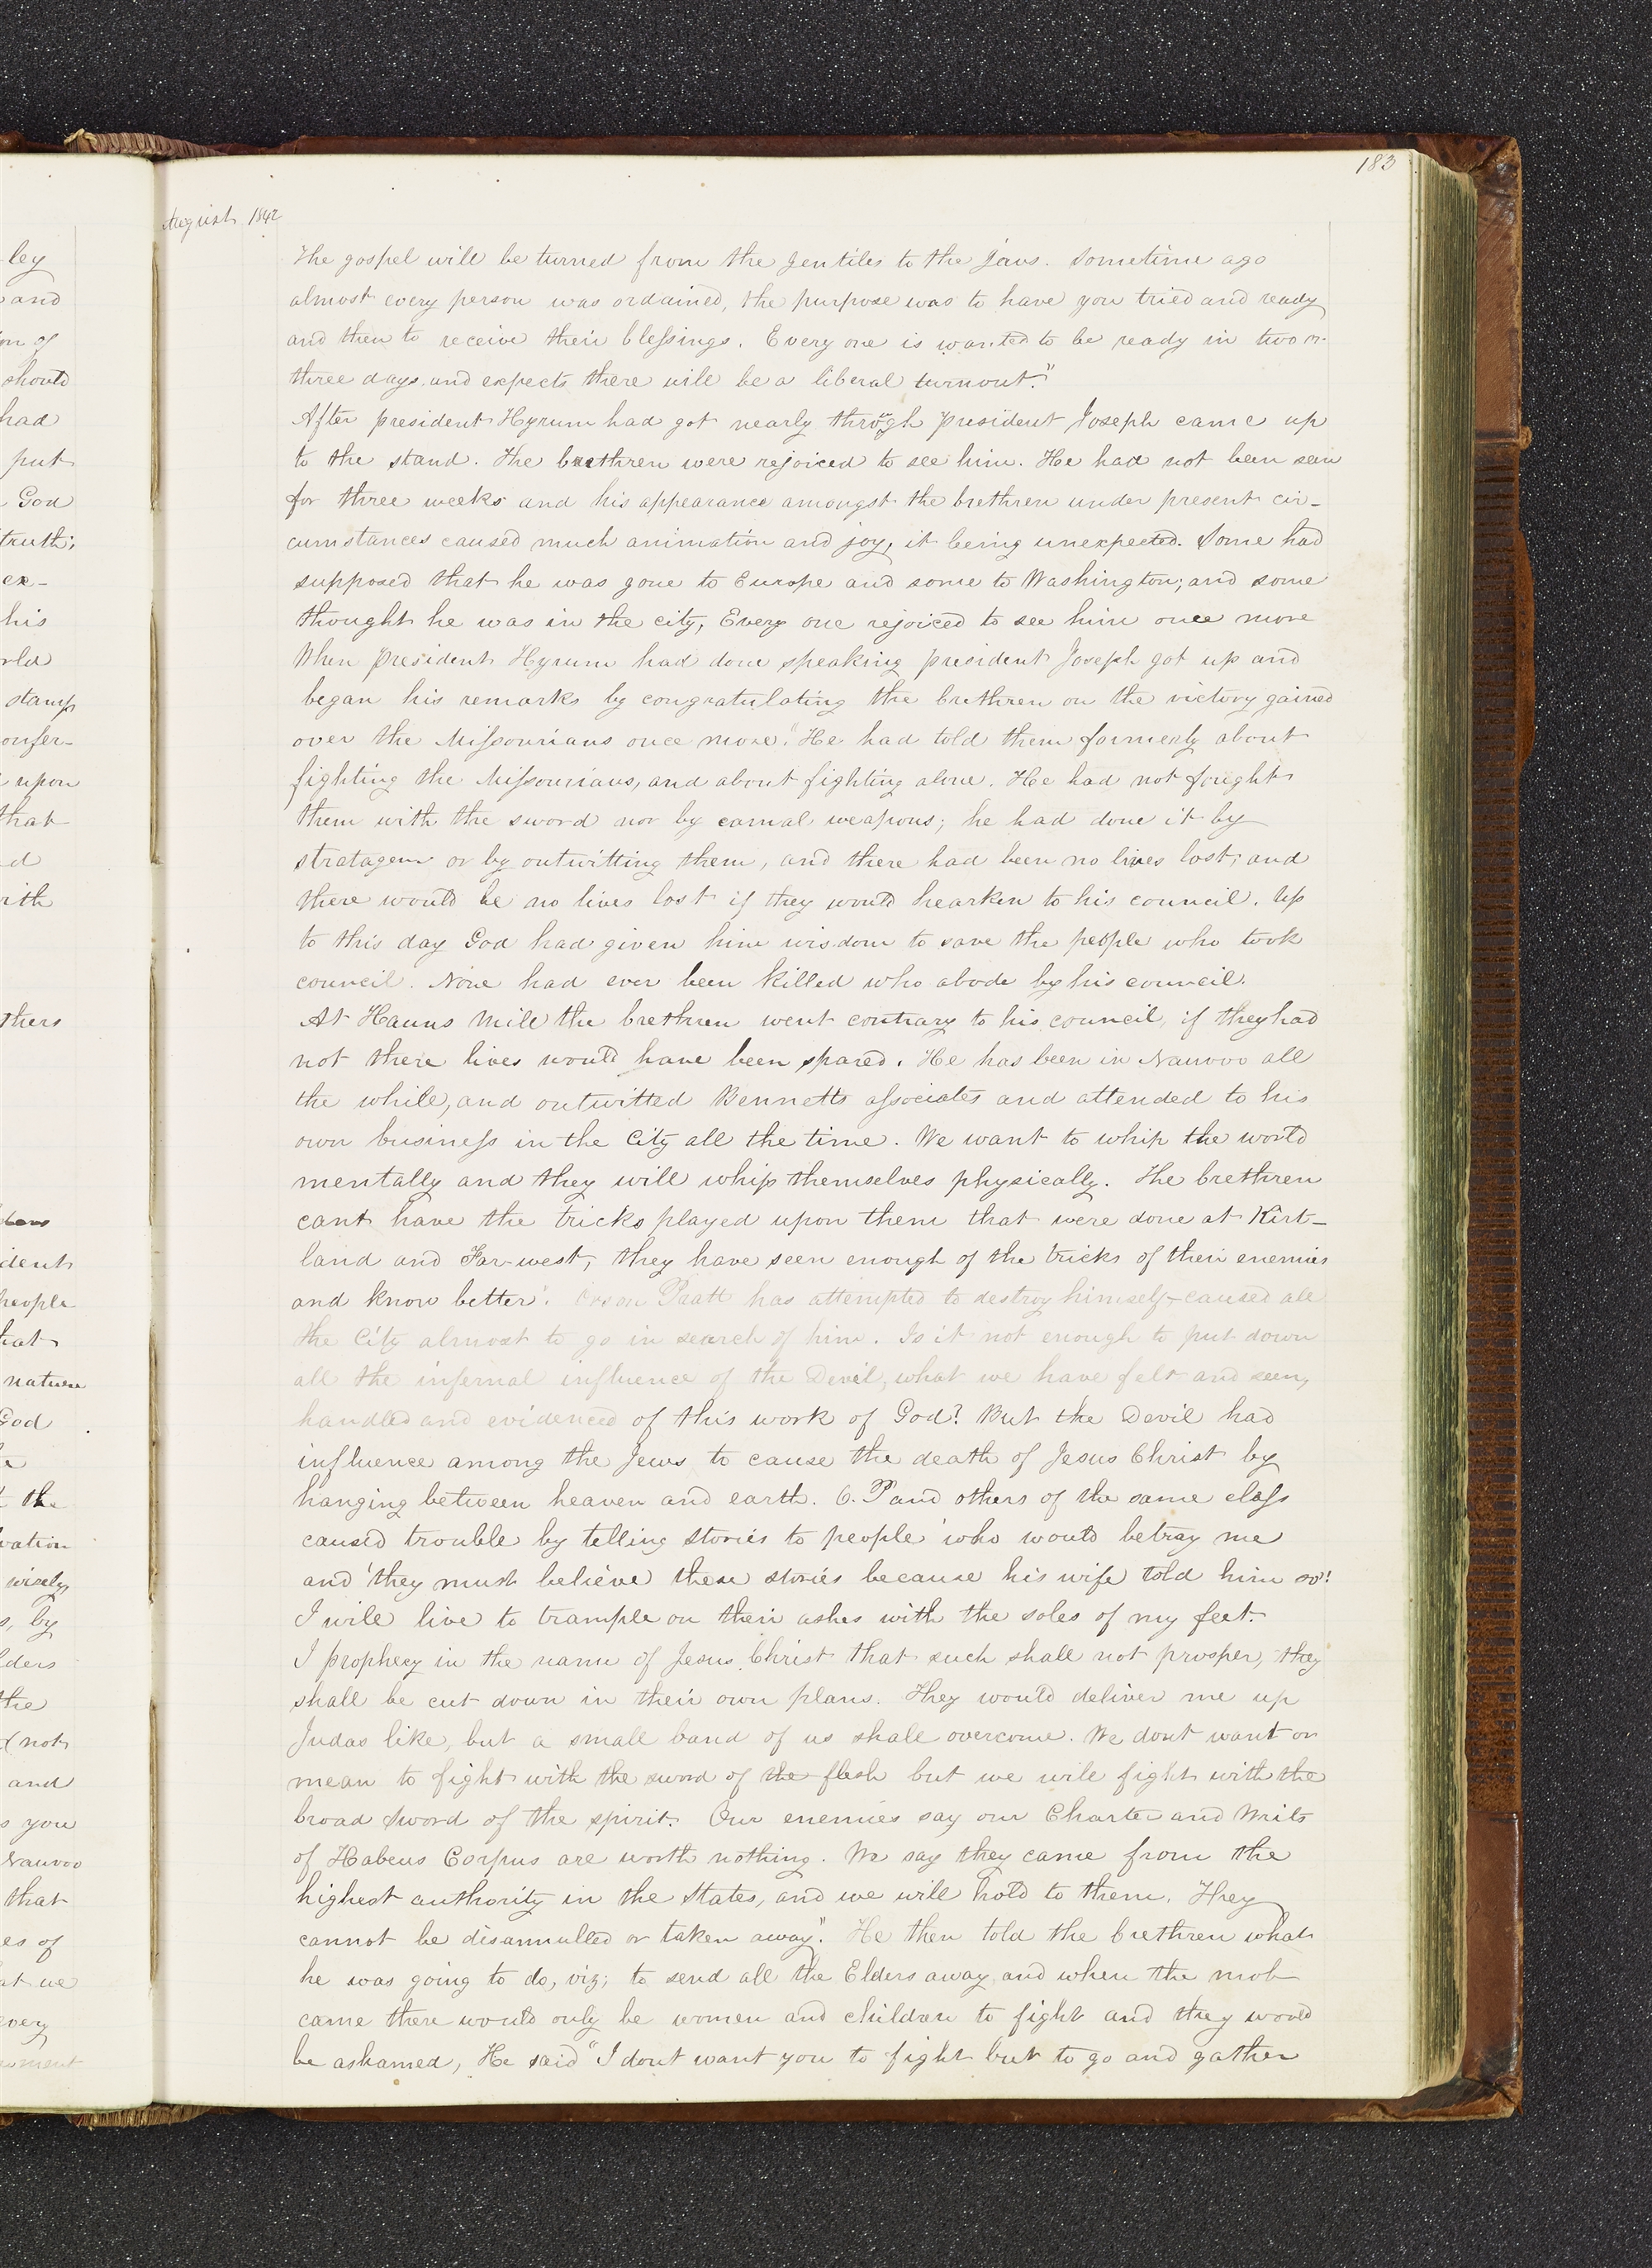 183
August 1842
The gospel will be turned from the gentiles to the jews. Sometime ago
almost every person was ordained, the purpose was to have you tried and ready
and then to receive their blessings. Every one is wanted to be ready in two or
three days and expects there will be a liberal turnout."
After president Hyrum had got nearly through president Joseph came up
to the stand. The brethren were rejoiced to see him. He had not been seen
for three weeks and his appearance amongst the brethren under present cir-
cumstances caused much animation and joy, it being unexpected. Some had
supposed that he was gone to Europe and some to Washington; and some
thought he was in the city, Every one rejoiced to see him once more
When president Hyrum had done speaking president Joseph got up and
began his remarks by congratulating the brethren on the victory gained
over the Missourians once more. "He had told them formerly about
fighting the Missourians, and about fighting alone. He had not fought
them with the sword nor by carnal weapons; he had done it by
stratagem or by outwitting them, and there had been no lives lost; and
there would be no lives lost if they would hearken to his council. Up
to this day God had given him wisdom to save the people who took
council. None had ever been killed who abode by his council.
At Hauns Mill the brethren went contrary to his council, if they had
not their lives would have been spared. He has been in Nauvoo all
the while, and outwitted Bennetts associates and attended to his
own business in the City all the time. We want to whip the world
mentally and they will whip themselves physically. The brethren
cant have the tricks played upon them that were done at Kirt-
land and Far-west, they have seen enough of the tricks of their enemies
and know better". Orson Pratt has attempted to destroy himself—caused all
the City almost to go in search of him. Is it not enough to put down
all the infernal influence of the Devil, what we have felt and seen,
handled and evidenced of this work of God? But the Devil had
influence among the Jews to cause the death of Jesus Christ by
hanging between heaven and earth. O. P and others of the same class
caused trouble by telling stories to people who would betray me
and 'they must believe these stories because his wife told him so'!
I will live to trample on their ashes with the soles of my feet.
I prophecy in the name of Jesus Christ that such shall not prosper, they
shall be cut down in their own plans. They would deliver me up
Judas like, but a small band of us shall overcome. We dont want or
mean to fight with the sword of the flesh but we will fight with the
broad sword of the spirit. Our enemies say our Charter and Writs
of Habeus Corpus are worth nothing. We say they came from the
highest authority in the States, and we will hold to them. They
cannot be disannulled or taken away". He then told the brethren what
he was going to do, viz; to send all the Elders away and when the mob
came there would only be women and children to fight and they would
be ashamed, He said "I dont want you to fight but to go and gather
ley
and
on of
should
had
put
God
truth;
ex-
his
rld
stamp
onfer-
upon
that
d
rith
thers
ident
people
hat
nature
God
the
vation
wisely
s, by
lders
the
(not
and
s you
Nauvoo
that
es of
at we
very